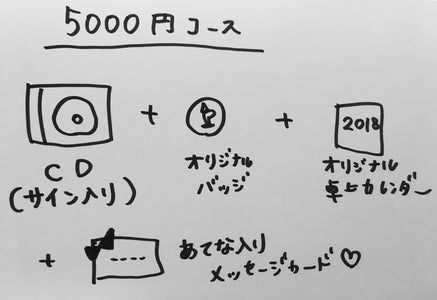 5000円コース
+
+
2018
CD
(サイン入り)
オリジナル
バッジ
オリジナル
卓上カレンダー
+
あてな入り
メッセージカード♡